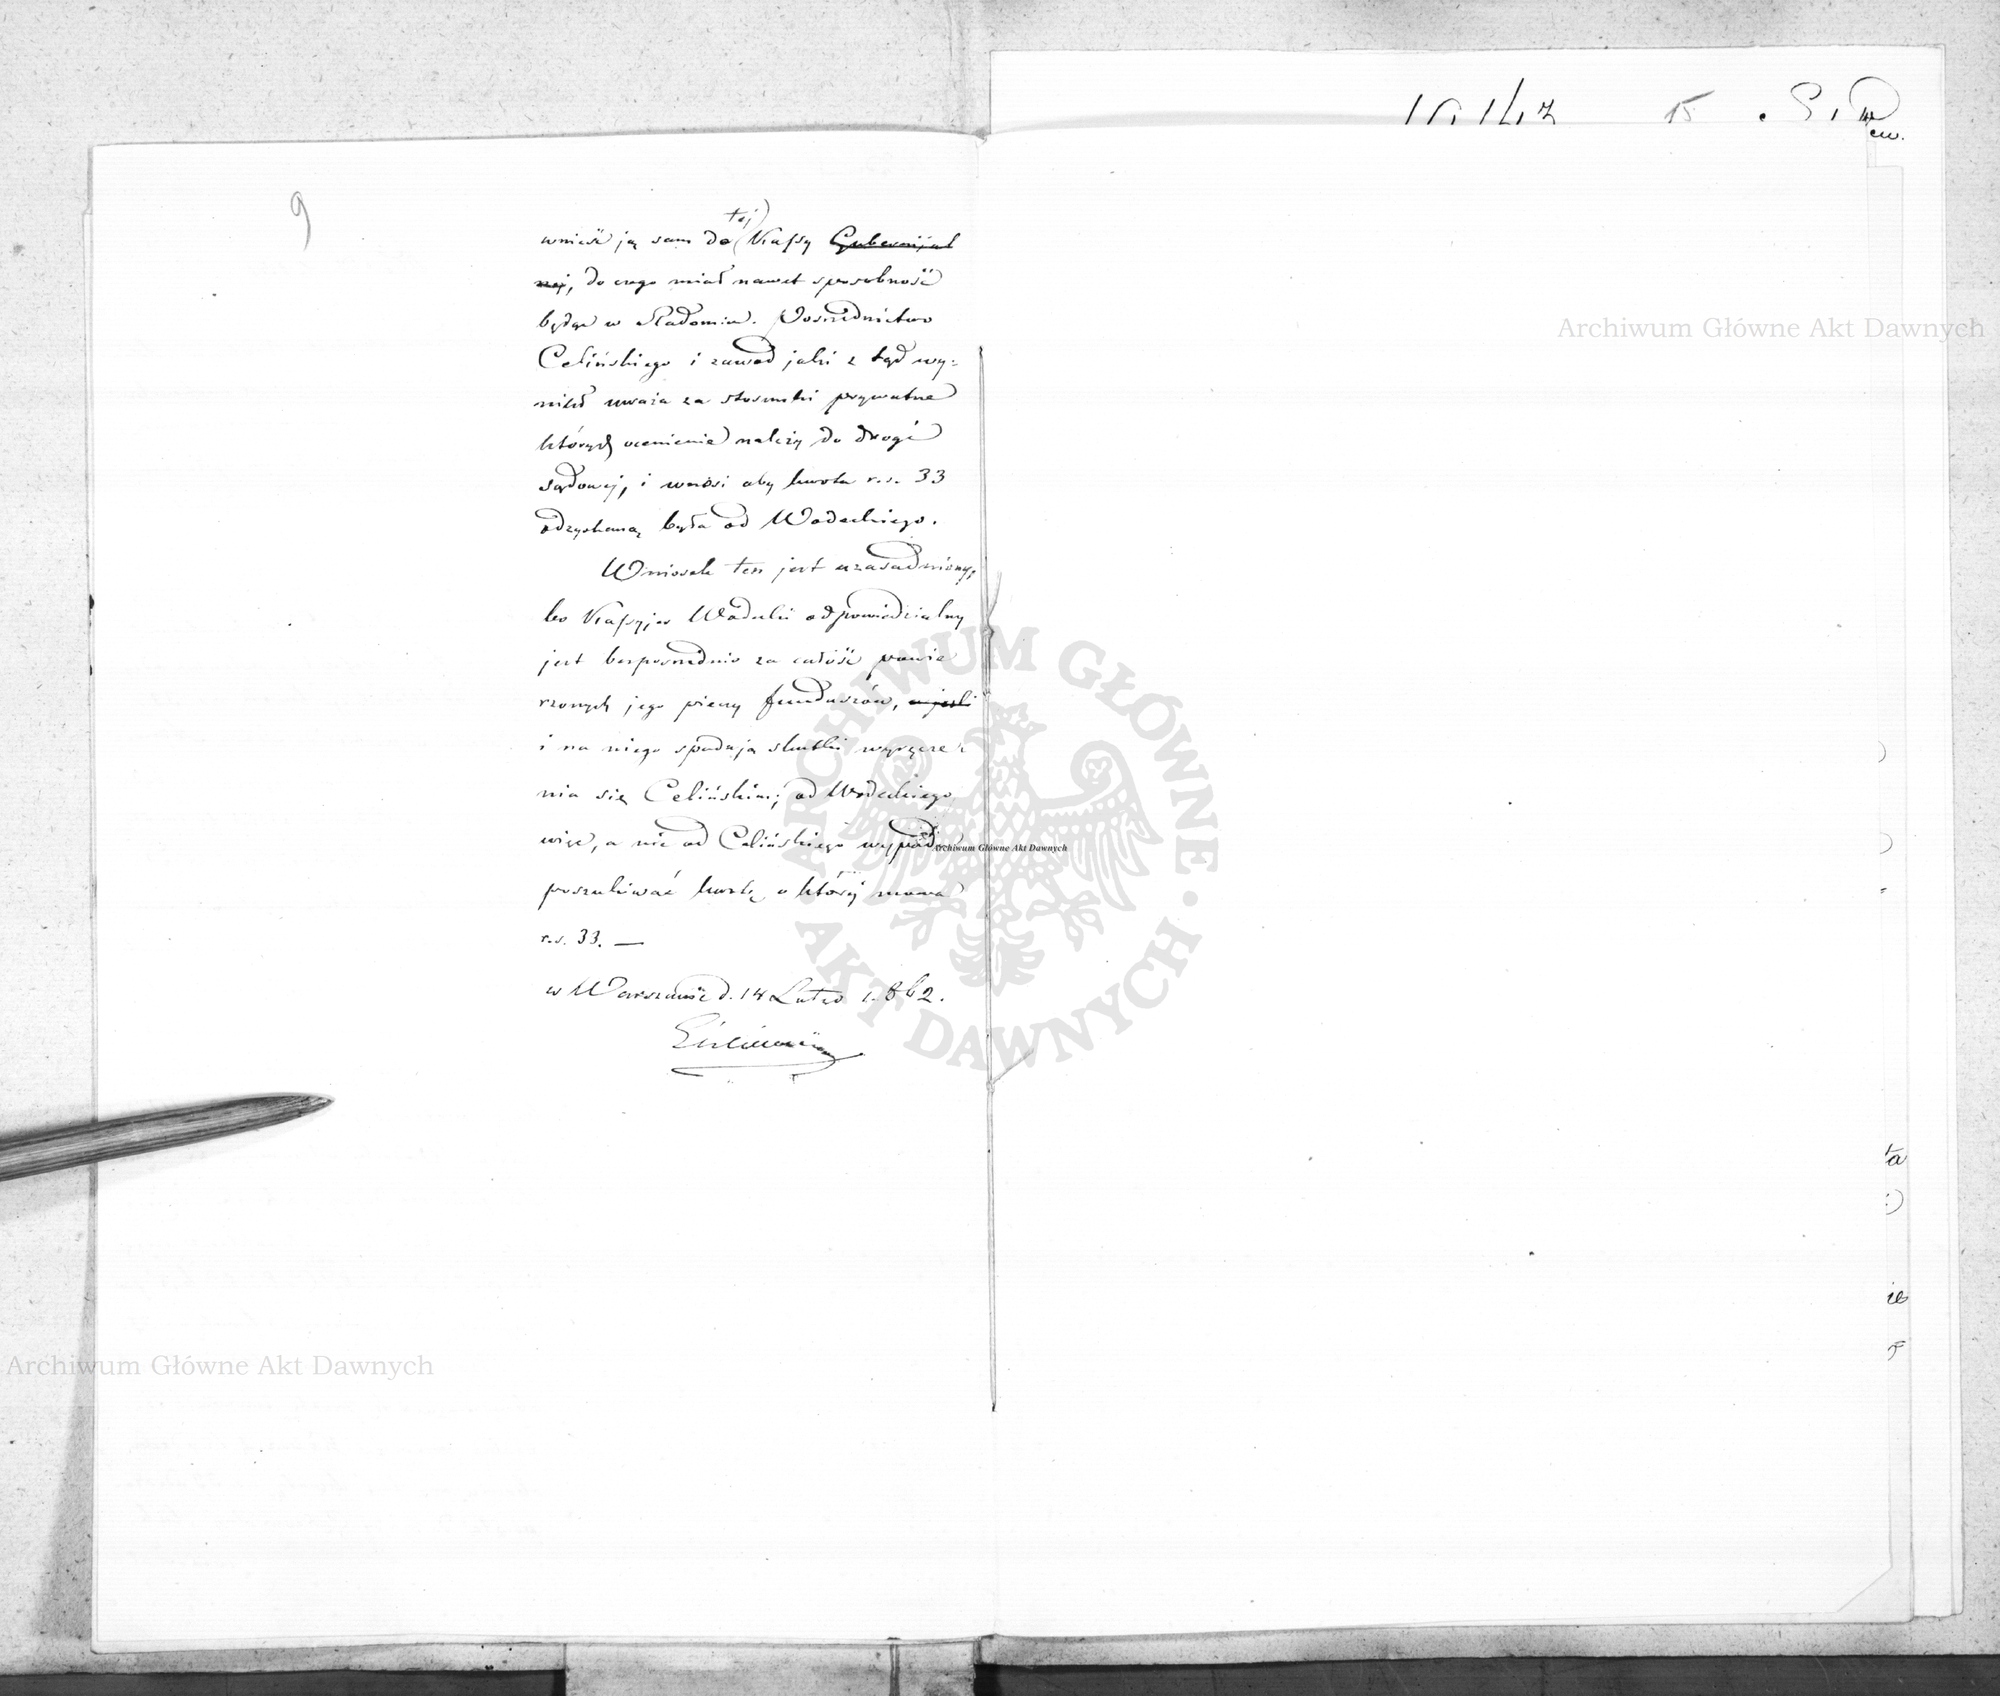 9
tej
wnieść ją sam do Kassy Gubernijal
nej, do czego miał nawet sposobność
będąc w Radomiu. Pośrednictwo
Celińskiego i zawód jaki z tąd wy=
nikł uważa za stosunki prywatne
których ocenienie należy do drogi
sądowej, i wnosi aby kwota r.s. 33
odzyskaną była od Wodeckiego.
Wniosek ten jest uzasadniony,
bo Kassyjer Wodecki odpowiedzialny
jest bezpośrednio za całość powie
rzonych jego pieczy funduszów,
i na niego spadają skutki wyręcze=
nia się Celińskim; od Wodeckiego
więc, a nie od Celińskiego wypada
poszukiwać kwotę o której mowa
r.s. 33. —
w Warszawie d. 14 Lutego 1862.
15
Archiwum Główne Akt Dawnych
ARCHIWUM GŁÓWNE · AKT DAWNYCH ·
Archiwum Główne Akt Dawnych
Archiwum Główne Akt Dawnych